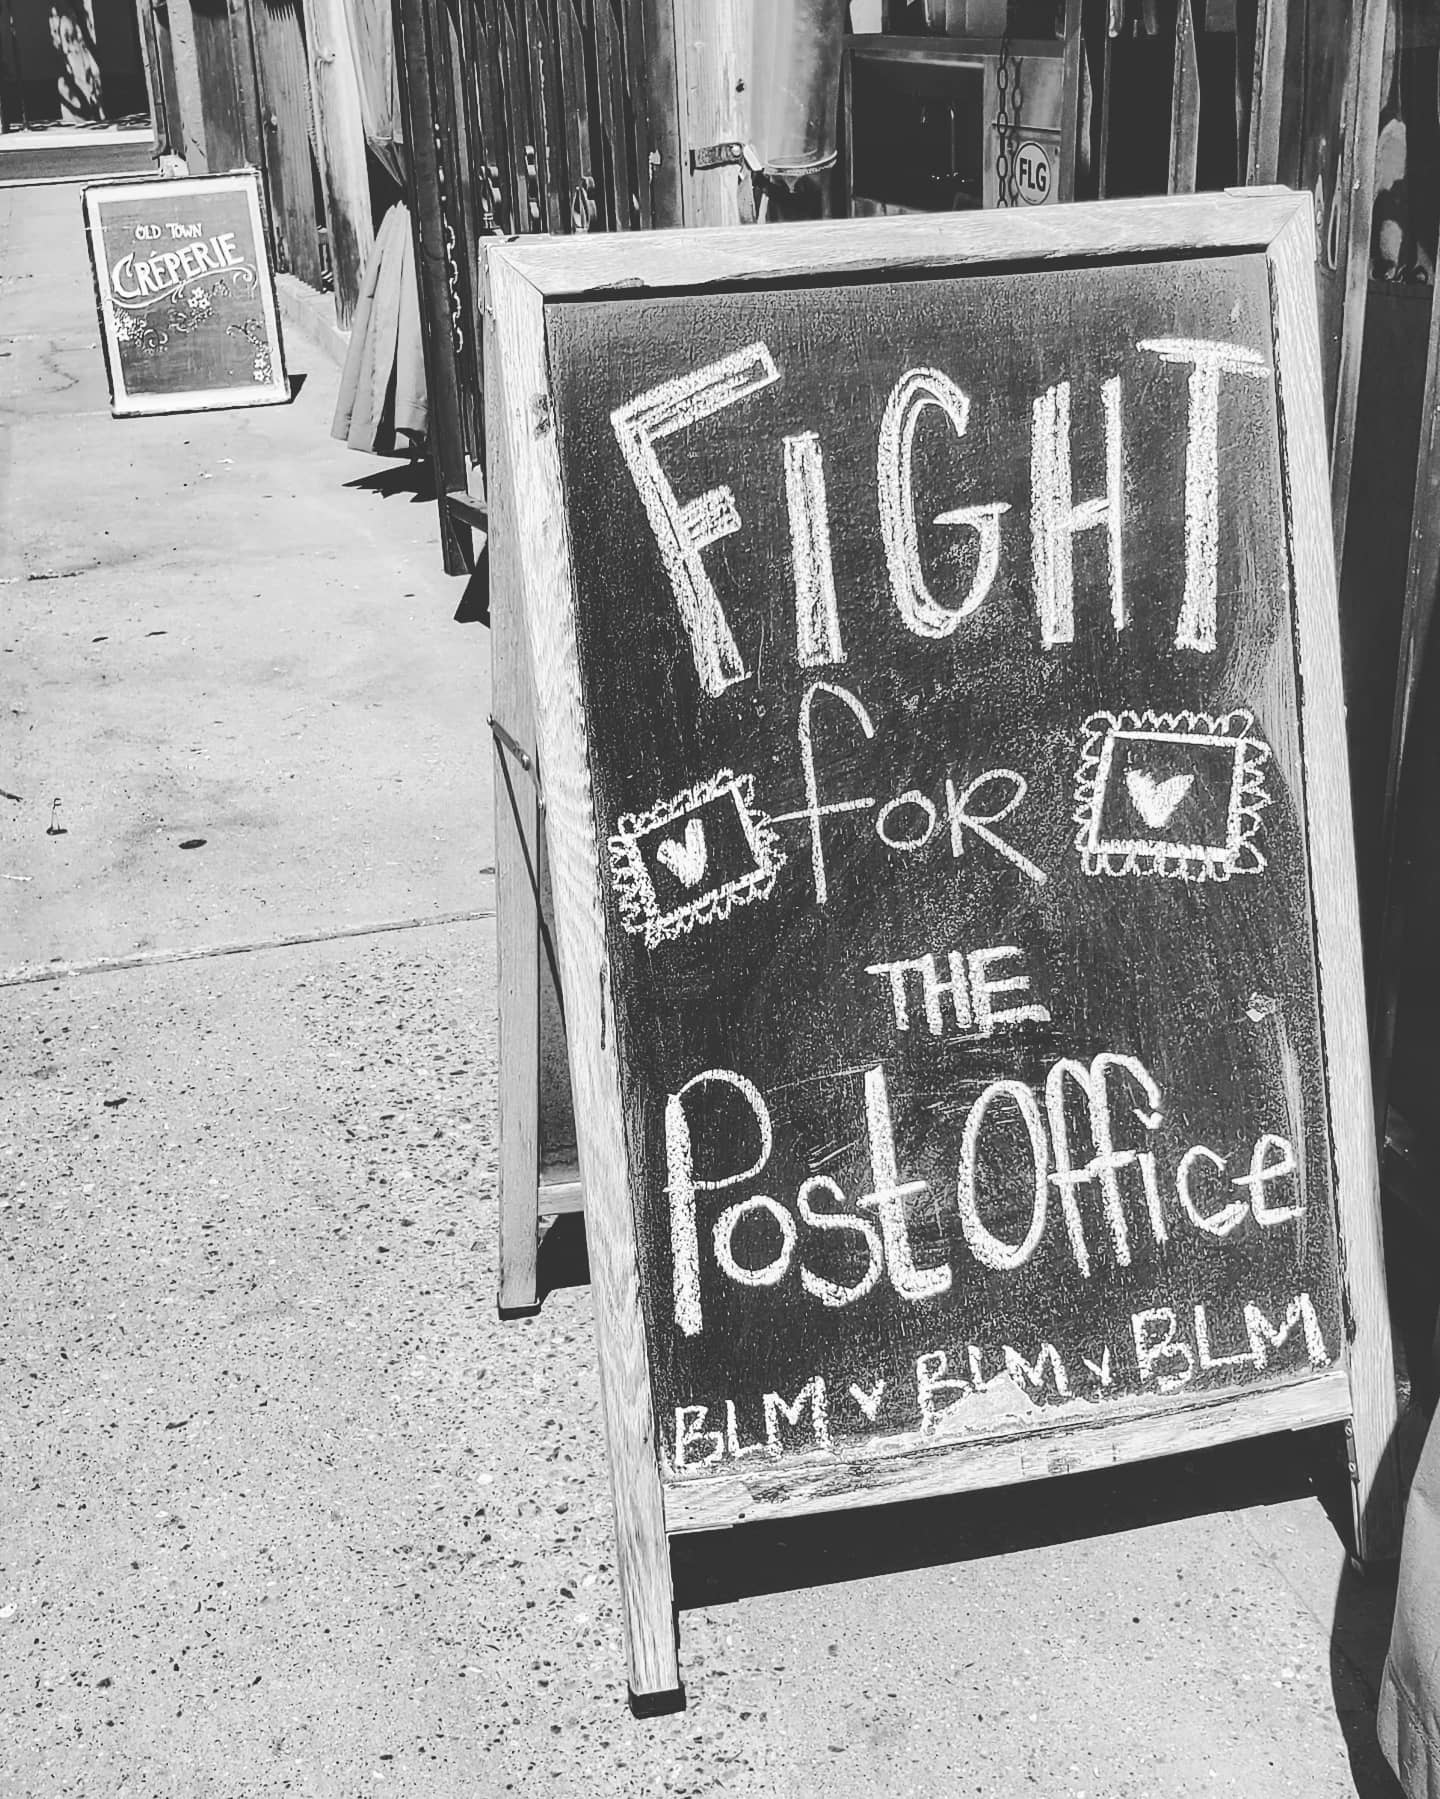 OLD TOWN
CRÊPERIE
FLG
FIGHT
for
THE
Post Office
BLM v BLM v BLM